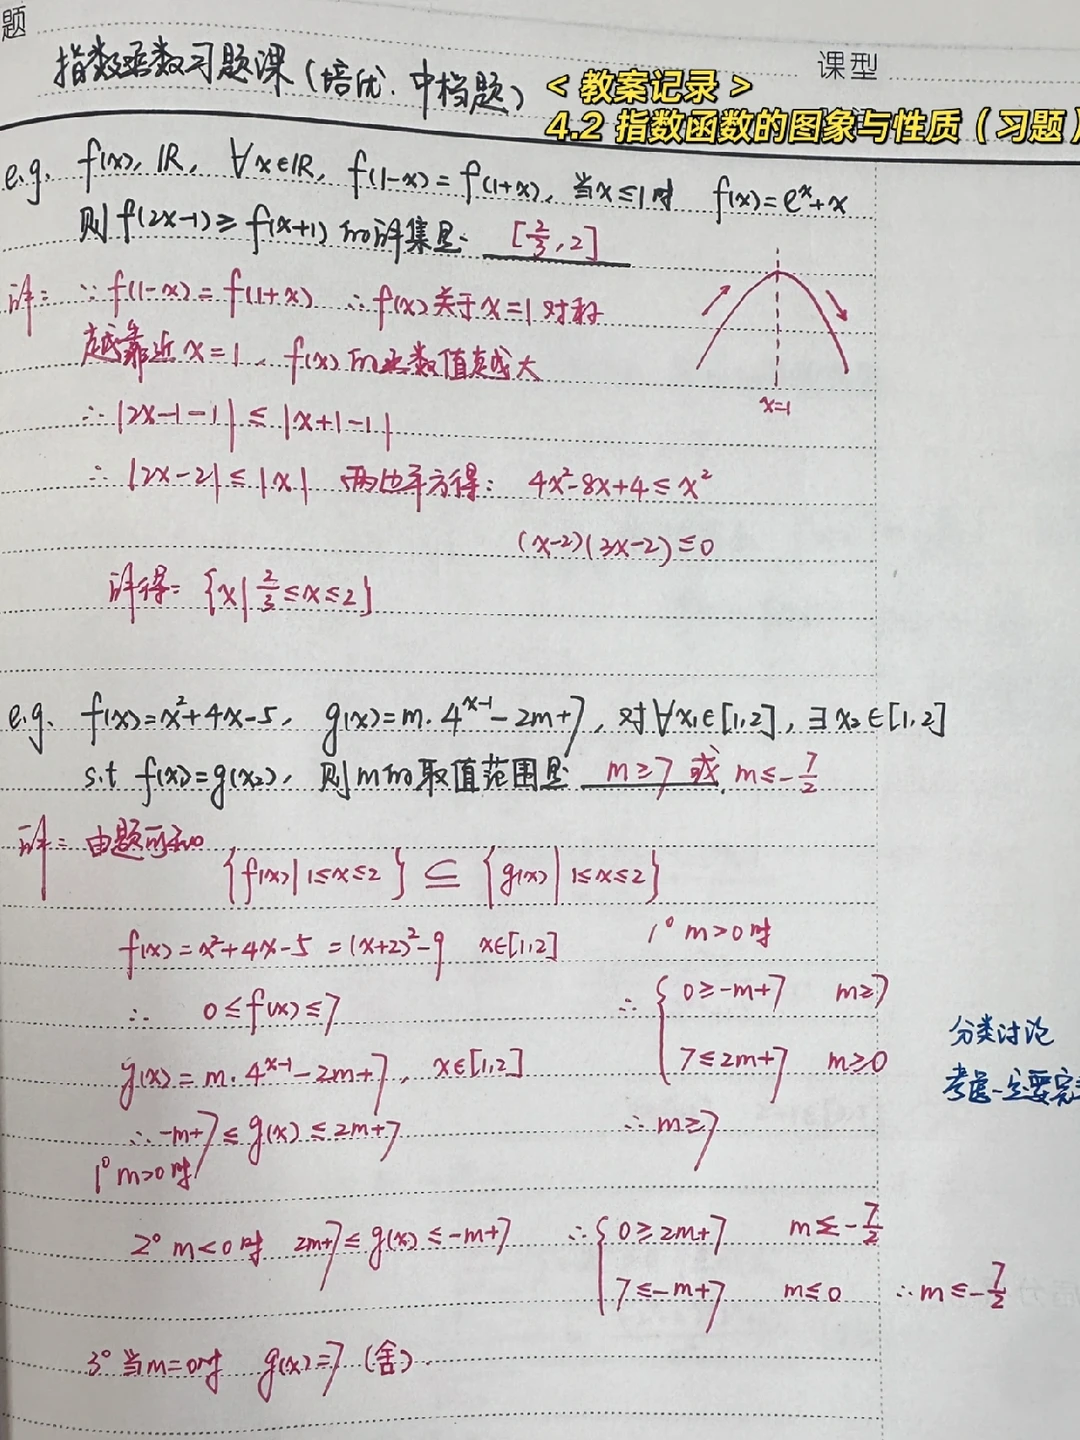 题
指数函数习题课(培优、中档题)
课型
<教案记录>
4.2 指数函数的图象与性质(习题)
e.g. f(x), IR, ∀x∈IR, f(1-x)=f(1+x), 当x≤1时 f(x)=eˣ+x
则f(2x-1)≥f(x+1)的解集是: [2/3, 2]
解: ∵f(1-x)=f(1+x) ∴f(x)关于x=1对称
越靠近x=1, f(x)的函数值越大
x=1
∴|2x-1-1|≤|x+1-1|
∴|2x-2|≤|x| 两边平方得: 4x²-8x+4≤x²
(x-2)(3x-2)≤0
解得: {x|2/3≤x≤2}
e.g. f(x)=x²+4x-5, g(x)=m·4ˣ⁻¹-2m+7, 对∀x₁∈[1,2], ∃x₂∈[1,2]
s.t f(x₁)=g(x₂), 则m的取值范围是 m≥7 或 m≤-7/2
解: 由题可知
{f(x)|1≤x≤2} ⊆ {g(x)|1≤x≤2}
f(x)=x²+4x-5=(x+2)²-9 x∈[1,2]
∴ 0≤f(x)≤7
g(x)=m·4ˣ⁻¹-2m+7, x∈[1,2]
∴-m+7≤g(x)≤2m+7
1° m>0时
1° m>0时
∴{0≥-m+7 m≥7
7≤2m+7 m≥0
∴m≥7
分类讨论
考虑一定要完
2° m<0时 2m+7≤g(x)≤-m+7 ∴{0≥2m+7 m≤-7/2
7≤-m+7 m≤0 ∴m≤-7/2
3° 当m=0时 g(x)=7 (舍).